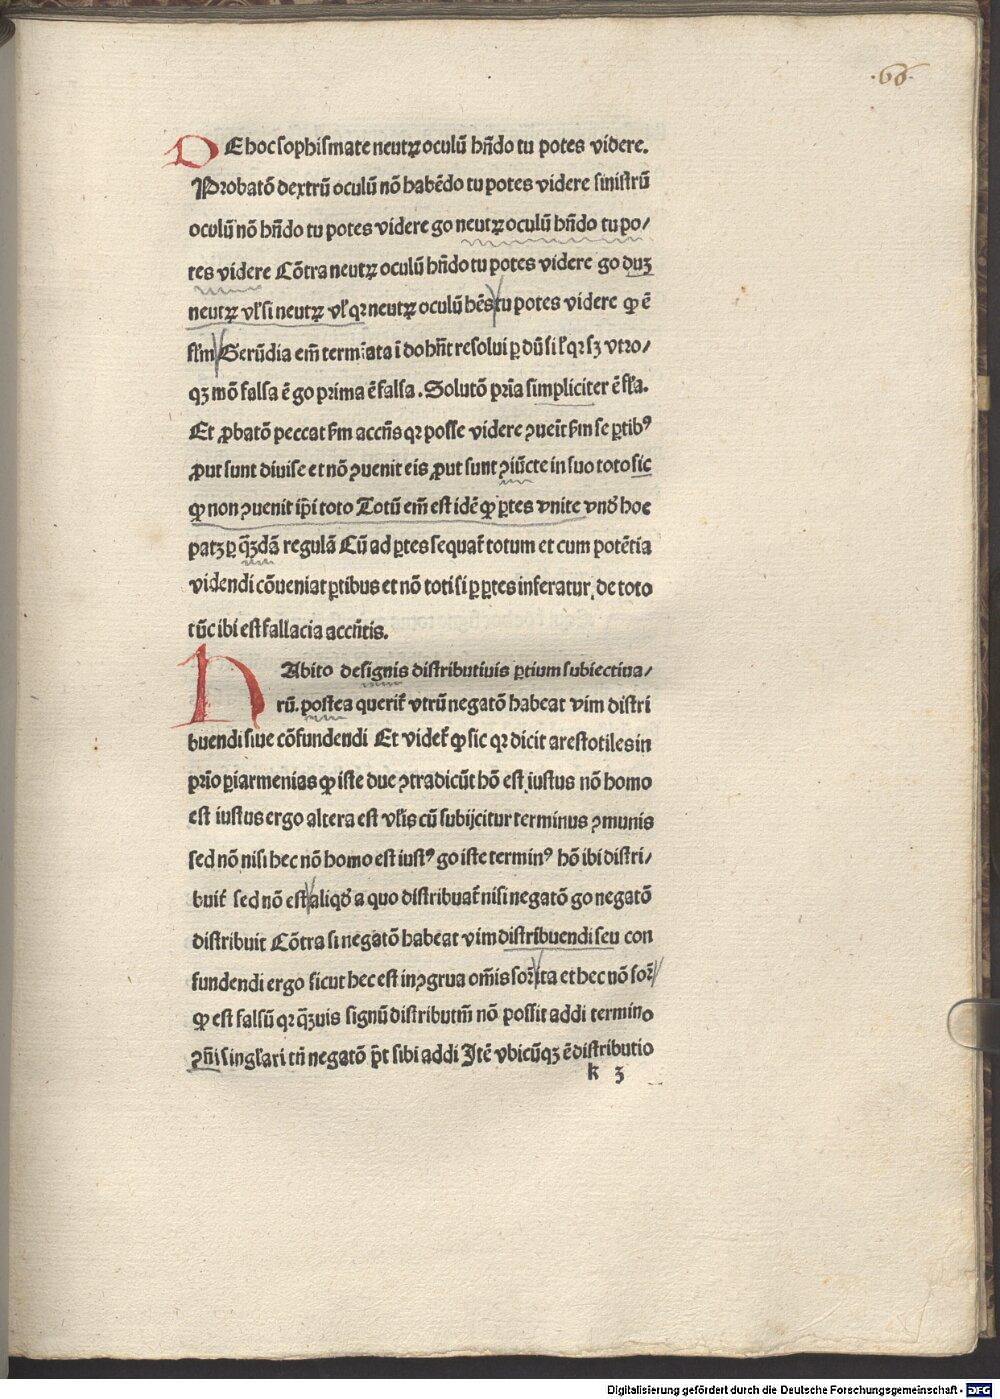 ·66·
DE hoc sophismate neutꝝ oculū hñdo tu potes videre.
Probatō dextrū oculū nō habēdo tu potes videre sinistrū
oculū nō hñdo tu potes videre go neutꝝ oculū hñdo tu po/
tes videre Cōtra neutꝝ oculū hñdo tu potes videre go duꝫ
neutꝝ vł si neutꝝ vł qꝛ neutꝝ oculū hēs tu potes videre ꝙ ē
flm̄ Gerūdia em̄ termīata ī do hñt resolui ꝑ dū si ł qꝛ sꝫ vtro/
qꝫ mō falsa ē go prima ē falsa. Solutō prīa simpliciter ē fła.
Et ꝓbatō peccat ẜm accñs qꝛ posse videre ꝯueīt ẜm se ꝑtibꝰ
ꝓut sunt diuise et nō ꝯuenit eis ꝓut sunt ꝯiūcte in suo toto sic
ꝙ non ꝯuenit ip̄i toto Totū em̄ est idē ꝙ ꝑtes vnite vnd̄ hoc
patꝫ ꝑ q̄ꝫdā regulā Cū ad ꝑtes sequat̄ totum et cum potētia
videndi cōueniat ꝑtibus et nō toti si ꝑ ꝑtes inferatur de toto
tūc ibi est fallacia accñtis.
HAbito de signis distributiuis ꝑtium subiectiua/
rū. postea querit̄ vtrū negatō habeat vim distri
buendi siue cōfundendi Et videt̄ ꝙ sic qꝛ dicit arestotiles in
prīo ꝑiarmenias ꝙ iste due ꝯtradicūt hō est iustus nō homo
est iustus ergo altera est vłis cū subijcitur terminus ꝯmunis
sed nō nisi hec nō homo est iustꝰ go iste terminꝰ hō ibi distri/
buit̄ sed nō est aliqd̄ a quo distribuat̄ nisi negatō go negatō
distribuit Cōtra si negatō habeat vim distribuendi seu con
fundendi ergo sicut hec est inꝯgrua om̄is sor̄ ita et hec nō sor̄
ꝙ est falsū qꝛ q̄ꝫuis signū distributm̄ nō possit addi termino
ꝯm̄i singłari tñ negatō p̄t sibi addi Itē vbicūqꝫ ē distributio
k 3
Digitalisierung gefördert durch die Deutsche Forschungsgemeinschaft - DFG